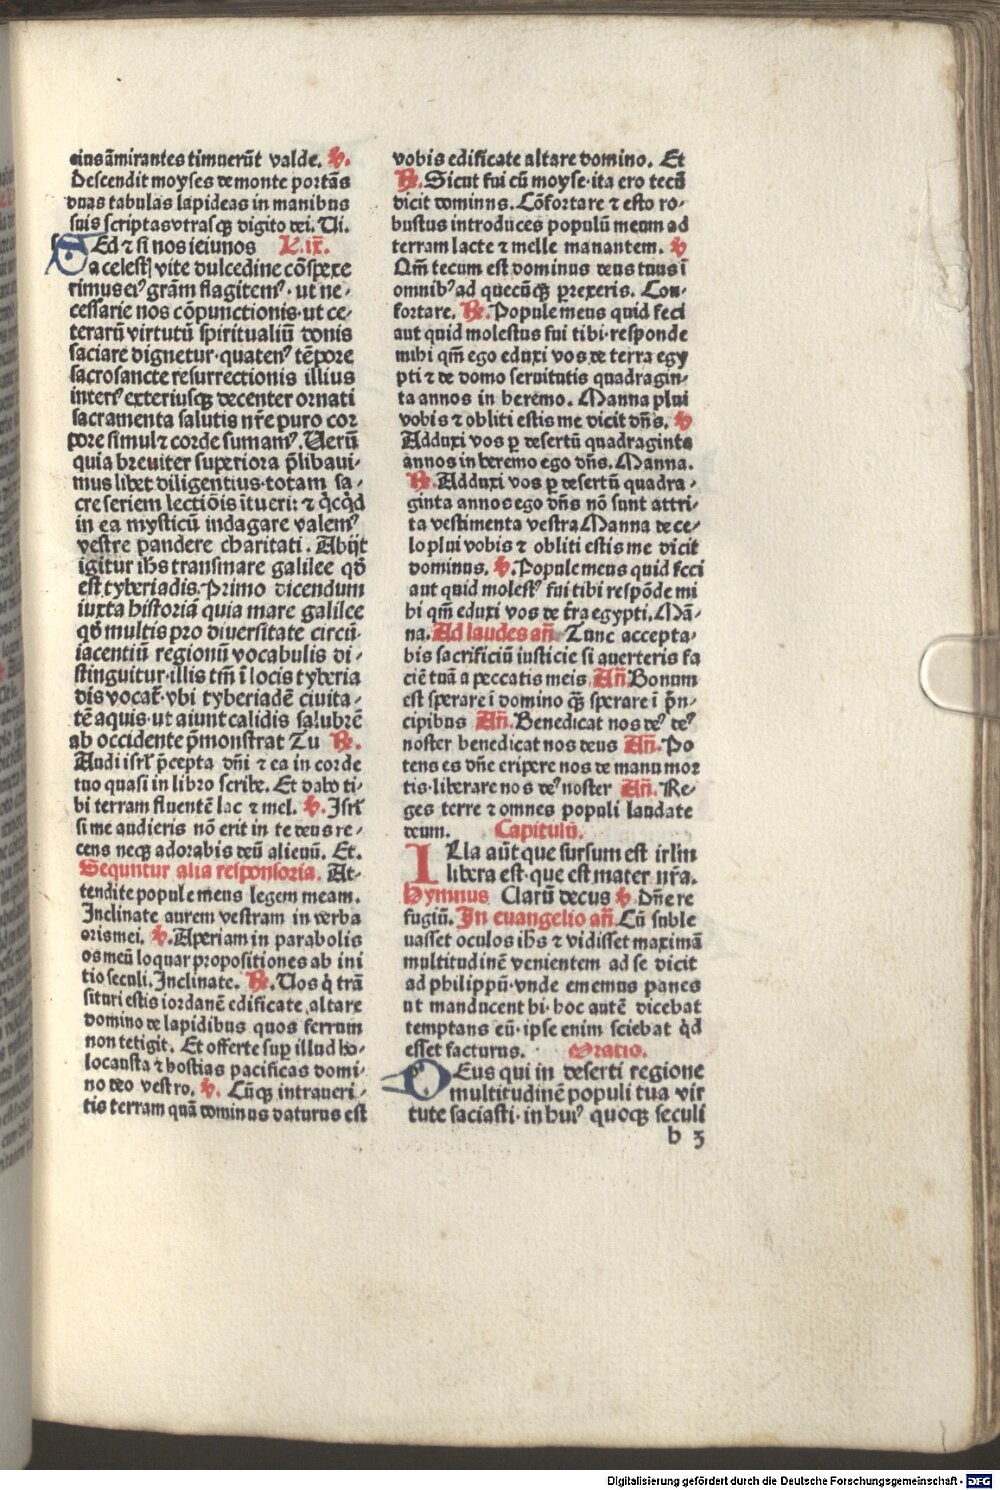 eius āmirantes timuerūt valde. ℣.
Descendit moyses de monte portās
duas tabulas lapideas in manibus
suis scriptas vtrasqȝ digito dei. Ui.
SEd ⁊ si nos ieiunos L.ix.
a celestꝭ vite dulcedine cōspexe
rimus eiꝰ grām flagitemꝰ · ut ne-
cessarie nos cōpunctionis · ut ce-
terarū virtutū spiritualiū donis
saciare dignetur · quatenꝰ tēpore
sacrosancte resurrectionis illius
interꝰ exteriusqȝ decenter ornati
sacramenta salutis nr̄e puro cor
pore simul ⁊ corde sumamꝰ. Uerū
quia breuiter superiora p̄libaui-
mus libet diligentius · totam sa-
cre seriem lectiōis ītueri: ⁊ qͥcqͥd
in ea mysticū indagare valemꝰ
vestre pandere charitati. Abijt
igitur ihs transmare galilee qđ
est tyberiadis. Primo dicendum
iuxta historiā quia mare galilee
qđ multis pro diuersitate circū-
iacentiū regionū vocabulis di-
stinguitur · illis tm̄ ī locis tyberia
dis vocat᷑ · vbi tyberiadē ciuita-
tē aquis · ut aiunt calidis salubrē
ab occidente p̄monstrat Tu ℟.
Audi isrl̄ p̄cepta dn̄i ⁊ ea in corde
tuo quasi in libro scribe. Et dabo ti-
bi terram fluentē lac ⁊ mel. ℣. Isrl̄
si me audieris nō erit in te deus re-
cens neqȝ adorabis deū alienū. Et.
Sequntur alia responsoria. At-
tendite popule meus legem meam.
Inclinate aurem vestram in verba
oris mei. ℣. Aperiam in parabolis
os meū loquar propositiones ab ini
tio seculi. Inclinate. ℟. Uos qͥ trā
situri estis iordanē edificate altare
domino de lapidibus quos ferrum
non tetigit. Et offerte suꝑ illud ho-
locausta ⁊ hostias pacificas domi-
no deo vestro. ℣. Cūqȝ intraueri-
tis terram quā dominus daturus est
vobis edificate altare domino. Et
℟. Sicut fui cū moyse · ita ero tecū
dicit dominus. Cōfortare ⁊ esto ro-
bustus introduces populū meum ad
terram lacte ⁊ melle manantem. ℣
Qm̄ tecum est dominus deus tuus ī
omnibꝰ ad quecūqȝ ꝑrexeris. Con-
fortare. ℟. Popule meus quid feci
aut quid molestus fui tibi · responde
mihi qm̄ ego eduxi vos de terra egy
pti ⁊ de domo seruitutis quadragin-
ta annos in heremo. Manna plui
vobis ⁊ obliti estis me dicit dn̄s. ℣
Adduxi vos ꝑ desertū quadraginta
annos in heremo ego dn̄s. Manna.
℟. Adduxi vos ꝑ desertū quadra-
ginta annos ego dn̄s nō sunt attri-
ta vestimenta vestra Manna de ce-
lo plui vobis ⁊ obliti estis me dicit
dominus. ℣. Popule meus quid feci
aut quid molestꝰ fui tibi respōde mi
hi qm̄ eduxi vos de t̄ra egypti. Mā-
na. Ad laudes an̄ Tunc accepta-
bis sacrificiū iusticie si auerteris fa
ciē tuā a peccatis meis. An̄. Bonum
est sperare ī domino qȝ sperare ī p̄n-
cipibus An̄. Benedicat nos deꝰ deꝰ
noster benedicat nos deus An̄. Po
tens es dn̄e eripere nos de manu mor
tis · liberare nos deꝰ noster An̄. Re-
ges terre ⁊ omnes populi laudate
deum. Capitulū.
ILla aūt que sursum est irl̄m
libera est · que est mater nr̄a.
Hymnus Clarū decus ℣ Dn̄e re
fugiū. In euangelio an̄. Cū suble
uasset oculos ihs ⁊ vidisset maximā
multitudinē venientem ad se dicit
ad philippū · vnde ememus panes
ut manducent hi · hoc autē dicebat
temptans eū · ipse enim sciebat qͥd
esset facturus. Oratio.
DEus qui in deserti regione
multitudinē populi tua vir
tute saciasti · in huiꝰ quoqȝ seculi
b 3
Digitalisierung gefördert durch die Deutsche Forschungsgemeinschaft - DFG